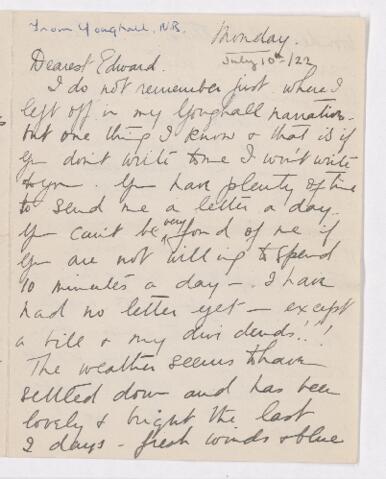 From Youghall, N.B.
Monday.
July 10th/22
Dearest Edward.
I do not remember just where I
left off in my Youghall narration
but one thing I know & that is if
you don't write to me I won't write
to you. You have plenty of time
to send me a letter a day.
You can't be very fond of me if
you are not willing to spend
10 minutes a day - I have
had no letter yet - except
a bill & my dividends!!!
The weather seems to have
settled down and has been
lovely & bright the last
2 days - fresh winds & blue